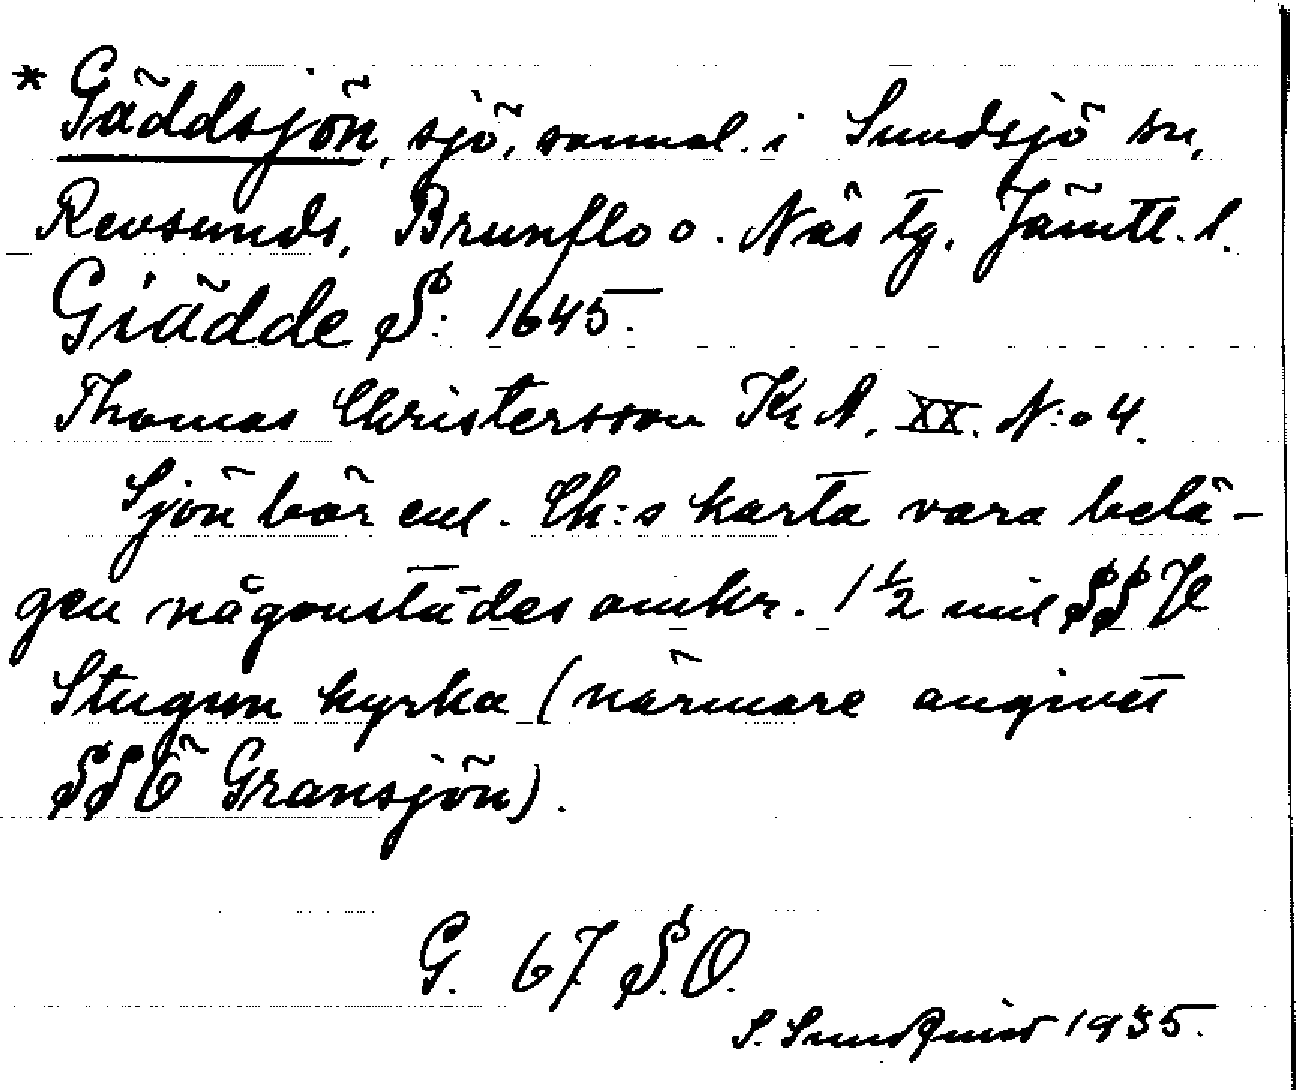 * Gäddsjön, sjö, samal. i Sundsjö sn,
Revsunds, Brunflo o. Näs tg. Jämtl. l.
Giädde S: 1645.
Thomas Christersson K A. XX. N:o 4.
Sjön bör enl. Ch:s karta vara belä-
gen någonstädes omkr. 1 1/2 mil SSV
Stugun kyrka (närmare angivet
SSÖ Gransjön).
G. 67 S.O.
S. Sundquist 1935.